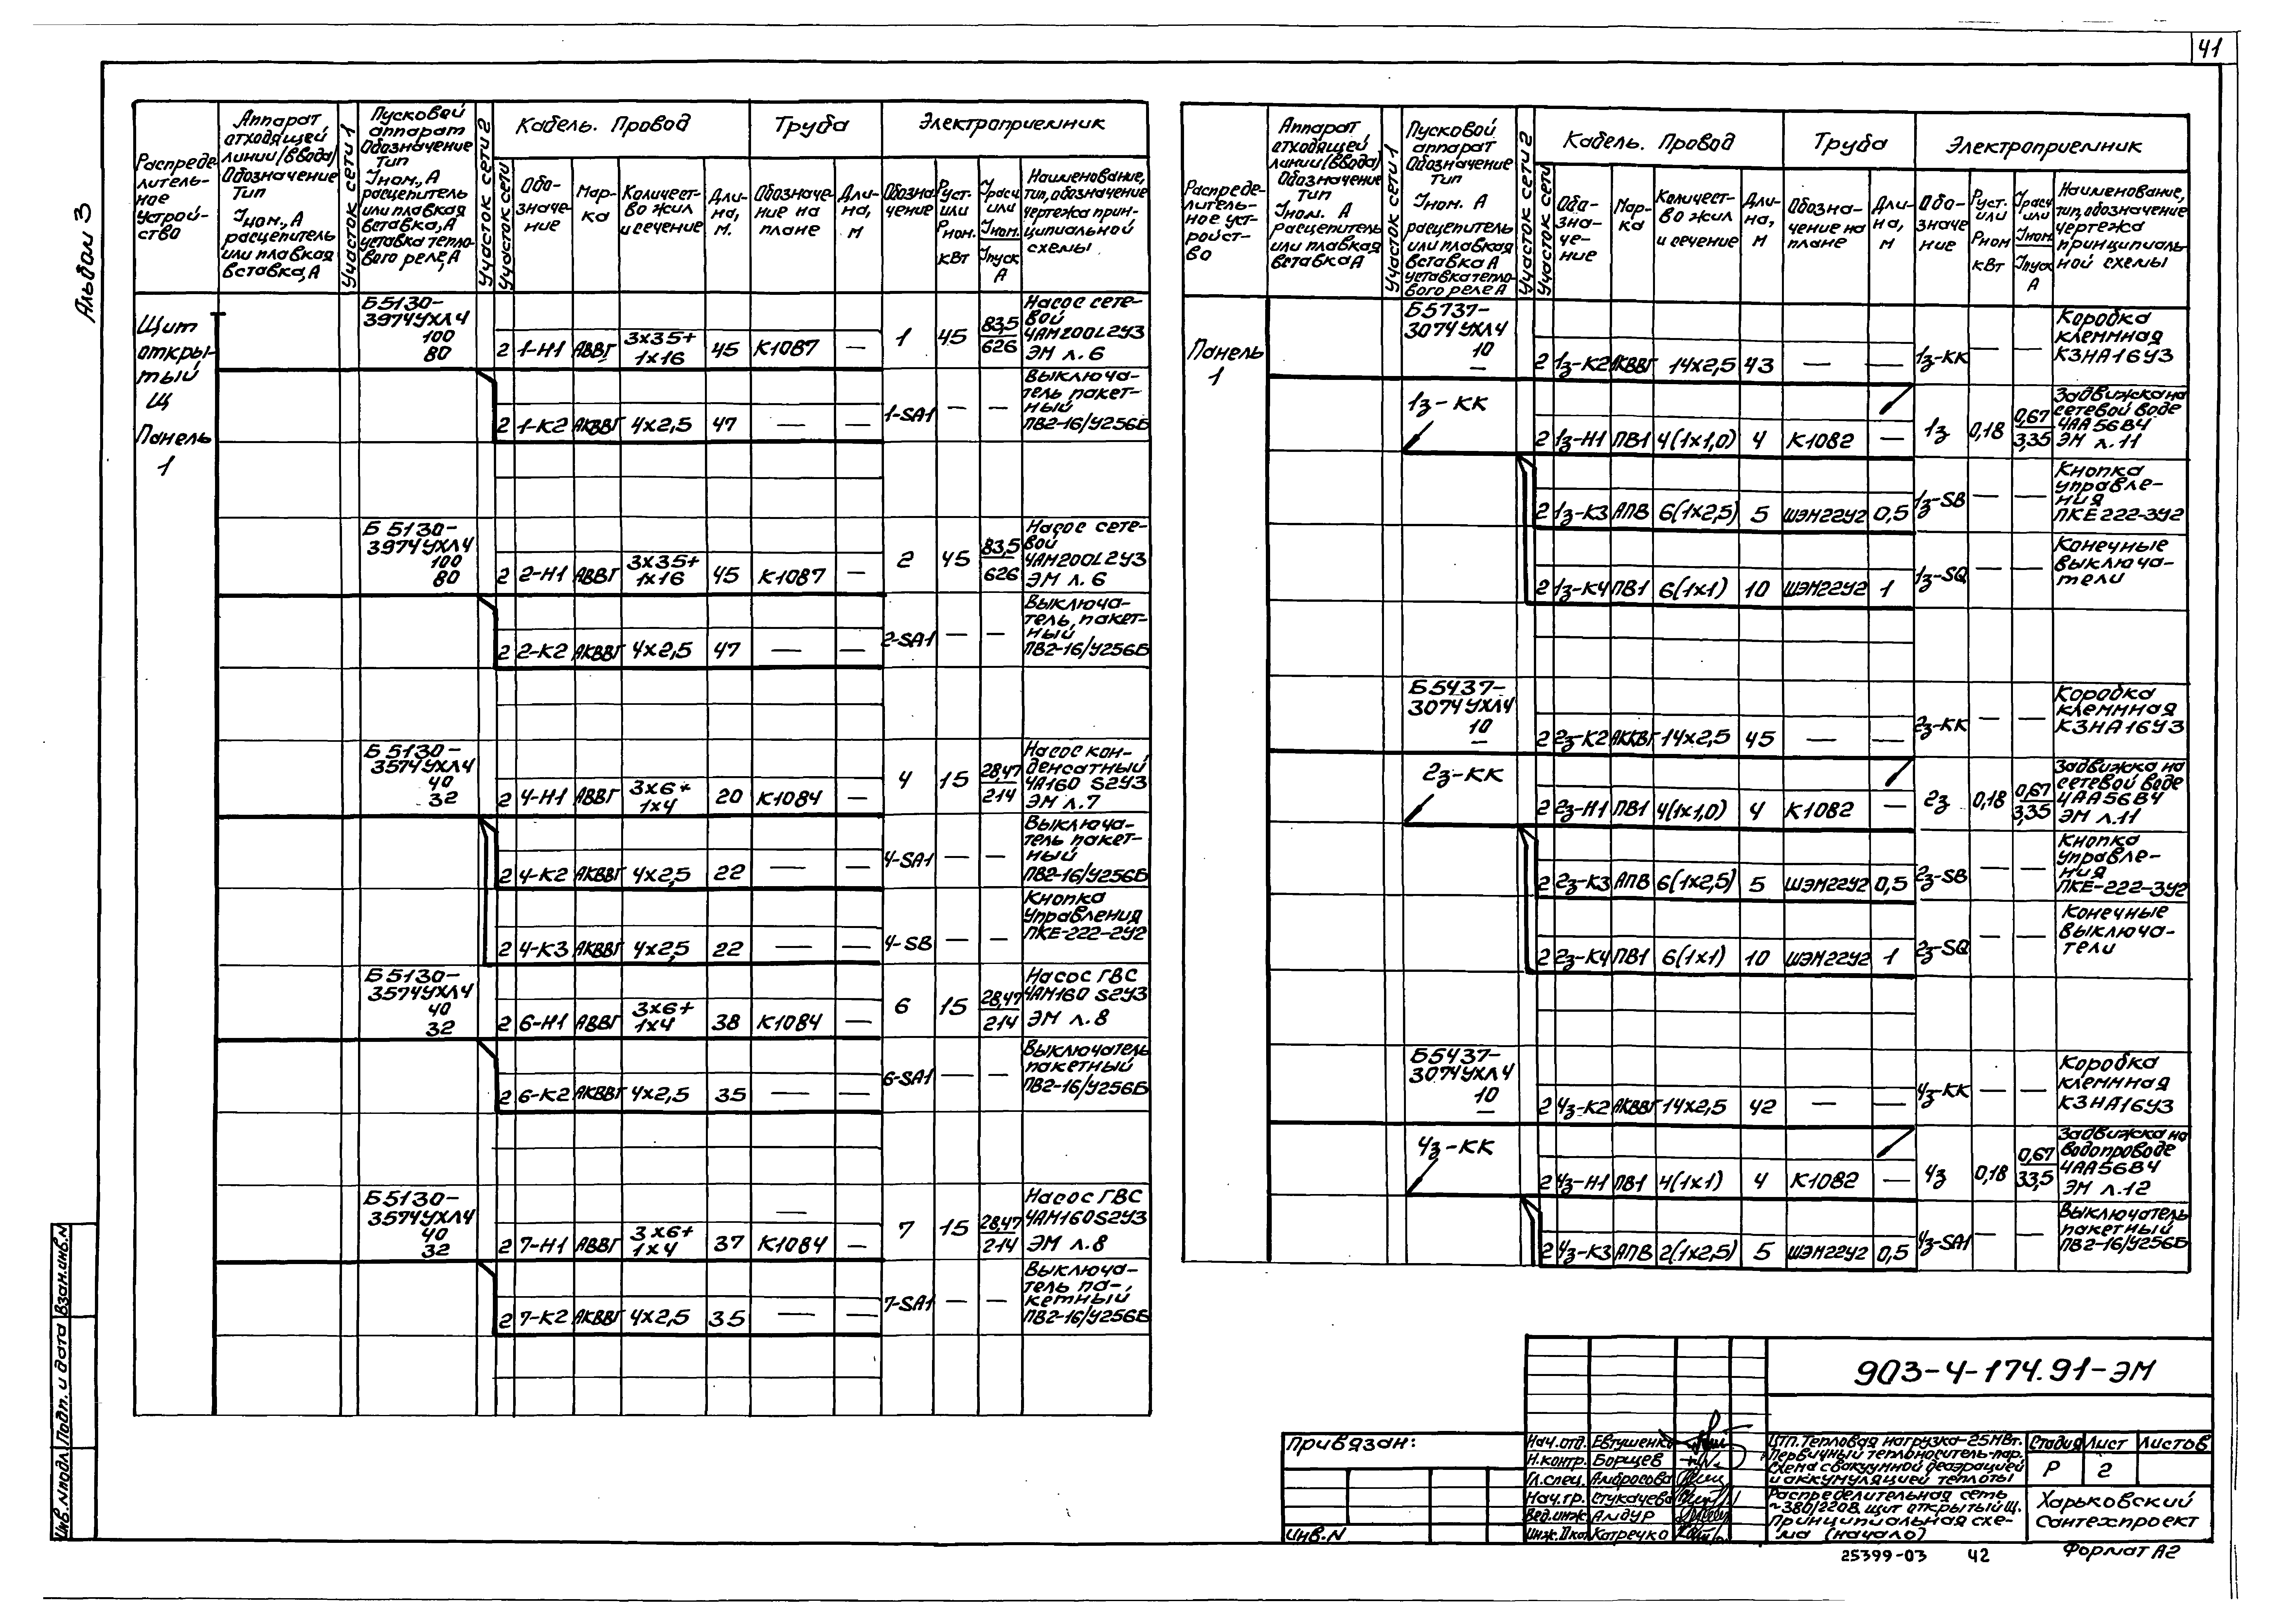 41
Альбом 3
Распреде-
литель-
ное
устрой-
ство
Аппарат
отходящей
линии/ввода/
Обозначение
Тип
Iном., А
расцепитель
или плавкая
вставка, А
Участок сети 1
Пусковой
аппарат
Обозначение
Тип
Iном., А
расцепитель
или плавкая
вставка, А
уставка тепло-
вого реле, А
Участок сети 2
Кабель. Провод
Труба
Электроприемник
Участок сети
Обо-
значе-
ние
Мар-
ка
Количест-
во жил
и сечение
Дли-
на,
м.
Обозначе-
ние на
плане
Дли-
на,
м
Обозна-
чение
Руст.
или
Рном.
кВт
Iрасч
или
Iном.
Iпуск
А
Наименование,
тип, обозначение
чертежа прин-
ципиальной
схемы
Щит
откры-
тый
Щ
Панель
1
Б5130-
3974УХЛ4
100
80
2 1-Н1 АВВГ 3х35+1х16 45 К1087 — 1 45 83,5/626
Насос сете-
вой
4АМ200L2У3
ЭМ л. 6
2 1-К2 АКВВГ 4х2,5 47 — — 1-SA1 — —
Выключа-
тель пакет-
ный
ПВ2-16/У256Б
Б5130-
3974УХЛ4
100
80
2 2-Н1 АВВГ 3х35+1х16 45 К1087 — 2 45 83,5/626
Насос сете-
вой
4АМ200L2У3
ЭМ л. 6
2 2-К2 АКВВГ 4х2,5 47 — — 2-SA1 — —
Выключа-
тель, пакет-
ный
ПВ2-16/У256Б
Б5130-
3574УХЛ4
40
32
2 4-Н1 АВВГ 3х6+1х4 20 К1084 — 4 15 28,47/214
Насос кон-
денсатный
4А160 S2У3
ЭМ л.7
2 4-К2 АКВВГ 4х2,5 22 — — 4-SA1 — —
Выключа-
тель пакет-
ный
ПВ2-16/У256Б
2 4-К3 АКВВГ 4х2,5 22 — — 4-SB — —
Кнопка
управления
ПКЕ-222-2У2
Б5130-
3574УХЛ4
40
32
2 6-Н1 АВВГ 3х6+1х4 38 К1084 — 6 15 28,47/214
Насос ГВС
4АМ160 S2У3
ЭМ л. 8
2 6-К2 АКВВГ 4х2,5 35 — — 6-SA1 — —
Выключатель
пакетный
ПВ2-16/У256Б
Б5130-
3574УХЛ4
40
32
—
2 7-Н1 АВВГ 3х6+1х4 37 К1084 — 7 15 28,47/214
Насос ГВС
4АМ160S2У3
ЭМ л.8
2 7-К2 АКВВГ 4х2,5 35 — — 7-SA1 — —
Выключа-
тель па-
кетный
ПВ2-16/У256Б
Распреде-
литель-
ное уст-
ройст-
во
Аппарат
отходящей
линии/ввода/
Обозначение
Тип
Iном. А
Расцепитель
или плавкая
вставка А
Участок сети 1
Пусковой
аппарат
Обозначение
Тип
Iном. А
расцепитель
или плавкая
вставка А
уставка тепло-
вого реле А
Участок сети 2
Кабель. Провод
Труба
Электроприемник
Участок сети
Обо-
зна-
че-
ние
Мар-
ка
Количест-
во жил
и сечение
Дли-
на,
м
Обозна-
чение на
плане
Дли-
на,
м
Обо-
значе
ние
Руст.
или
Рном
кВт
Iрасч
или
Iном.
Iпуск
А
Наименование,
тип, обозначение
чертежа
принципиаль-
ной схемы
Панель
1
Б5737-
3074УХЛ4
10
—
2 1з-К2 АКВВГ 14х2,5 43 — — 1з-КК — —
Коробка
клеммная
КЗНА16У3
1з-КК
2 1з-Н1 ПВ1 4(1х1,0) 4 К1082 — 1з 0,18 0,67/3,35
Задвижка на
сетевой воде
4АА56В4
ЭМ л.11
2 1з-К3 АПВ 6(1х2,5) 5 ШЭМ22У2 0,5 1з-SB — —
Кнопка
управле-
ния
ПКЕ 222-3У2
2 1з-К4 ПВ1 6(1х1) 10 ШЭМ22У2 1 1з-SQ — —
Конечные
выключа-
тели
Б5437-
3074УХЛ4
10
—
2 2з-К2 АККВГ 14х2,5 45 — — 2з-КК — —
Коробка
клеммная
КЗНА16У3
2з-КК
2 2з-Н1 ПВ1 4(1х1,0) 4 К1082 — 2з 0,18 0,67/3,35
Задвижка на
сетевой воде
4АА56В4
ЭМ л.11
2 2з-К3 АПВ 6(1х2,5) 5 ШЭМ22У2 0,5 2з-SB — —
Кнопка
управле-
ния
ПКЕ-222-3У2
2 2з-К4 ПВ1 6(1х1) 10 ШЭМ22У2 1 2з-SQ — —
Конечные
выключа-
тели
Б5437-
3074УХЛ4
10
—
2 4з-К2 АКВВГ 14х2,5 42 — — 4з-КК — —
Коробка
клеммная
КЗНА16У3
4з-КК
2 4з-Н1 ПВ1 4(1х1) 4 К1082 — 4з 0,18 0,67/33,5
Задвижка на
водопроводе
4АА56В4
ЭМ л.12
2 4з-К3 АПВ 2(1х2,5) 5 ШЭМ22У2 0,5 4з-SA1 — —
Выключатель
пакетный
ПВ2-16/У256Б
903-4-174.91-ЭМ
Привязан:
Инв.N
Нач.отд. Евтушенко
Н.контр. Борщев
Гл.спец. Амбросова
Нач.гр. Стукачева
Вед.инж. Амдур
Инж.IIкат. Катречко
ЦТП. Тепловая нагрузка-25МВт.
Первичный теплоноситель-пар.
Схема с вакуумной деаэрацией
и аккумуляцией теплоты
Стадия Лист Листов
Р 2
Распределительная сеть
~380/220В. щит открытый Щ.
Принципиальная схе-
ма (начало)
Харьковский
Сантехпроект
25399-03 42 Формат А2
Инв.N подл. Подп. и дата Взам.инв.N